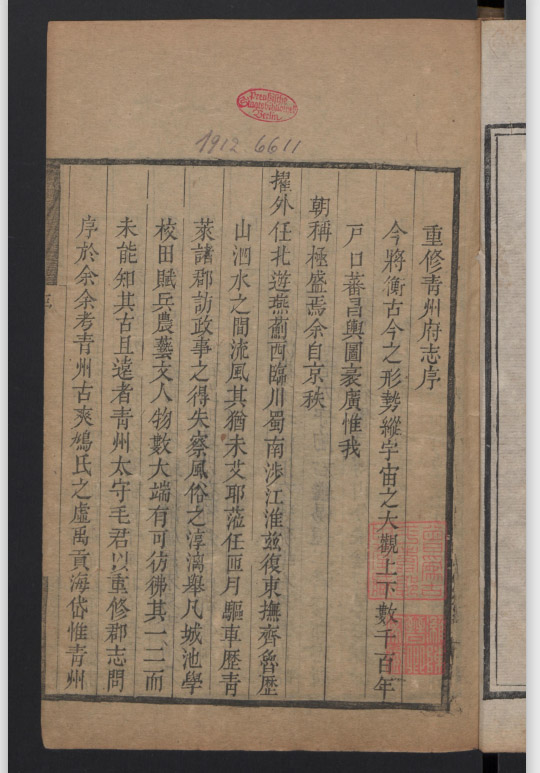 Preußische
Staatsbibliothek
Berlin
1912.6611
重修青州府志序
今將衡古今之形勢縱宇宙之大觀上下數千百年
戸口蕃昌輿圖袤廣惟我
朝稱極盛焉余自京秩
擢外任北遊燕薊西臨川蜀南涉江淮茲復東撫齊魯歷
山泗水之間流風其猶未艾耶蒞任匝月驅車歷青
萊諸郡訪政事之得失察風俗之淳漓舉凡城池學
校田賦兵農藝文人物數大端有可彷彿其一二而
未能知其古且遠者青州太守毛君以重修郡志問
序於余余考青州古爽鳩氏之虛禹貢海岱惟青州